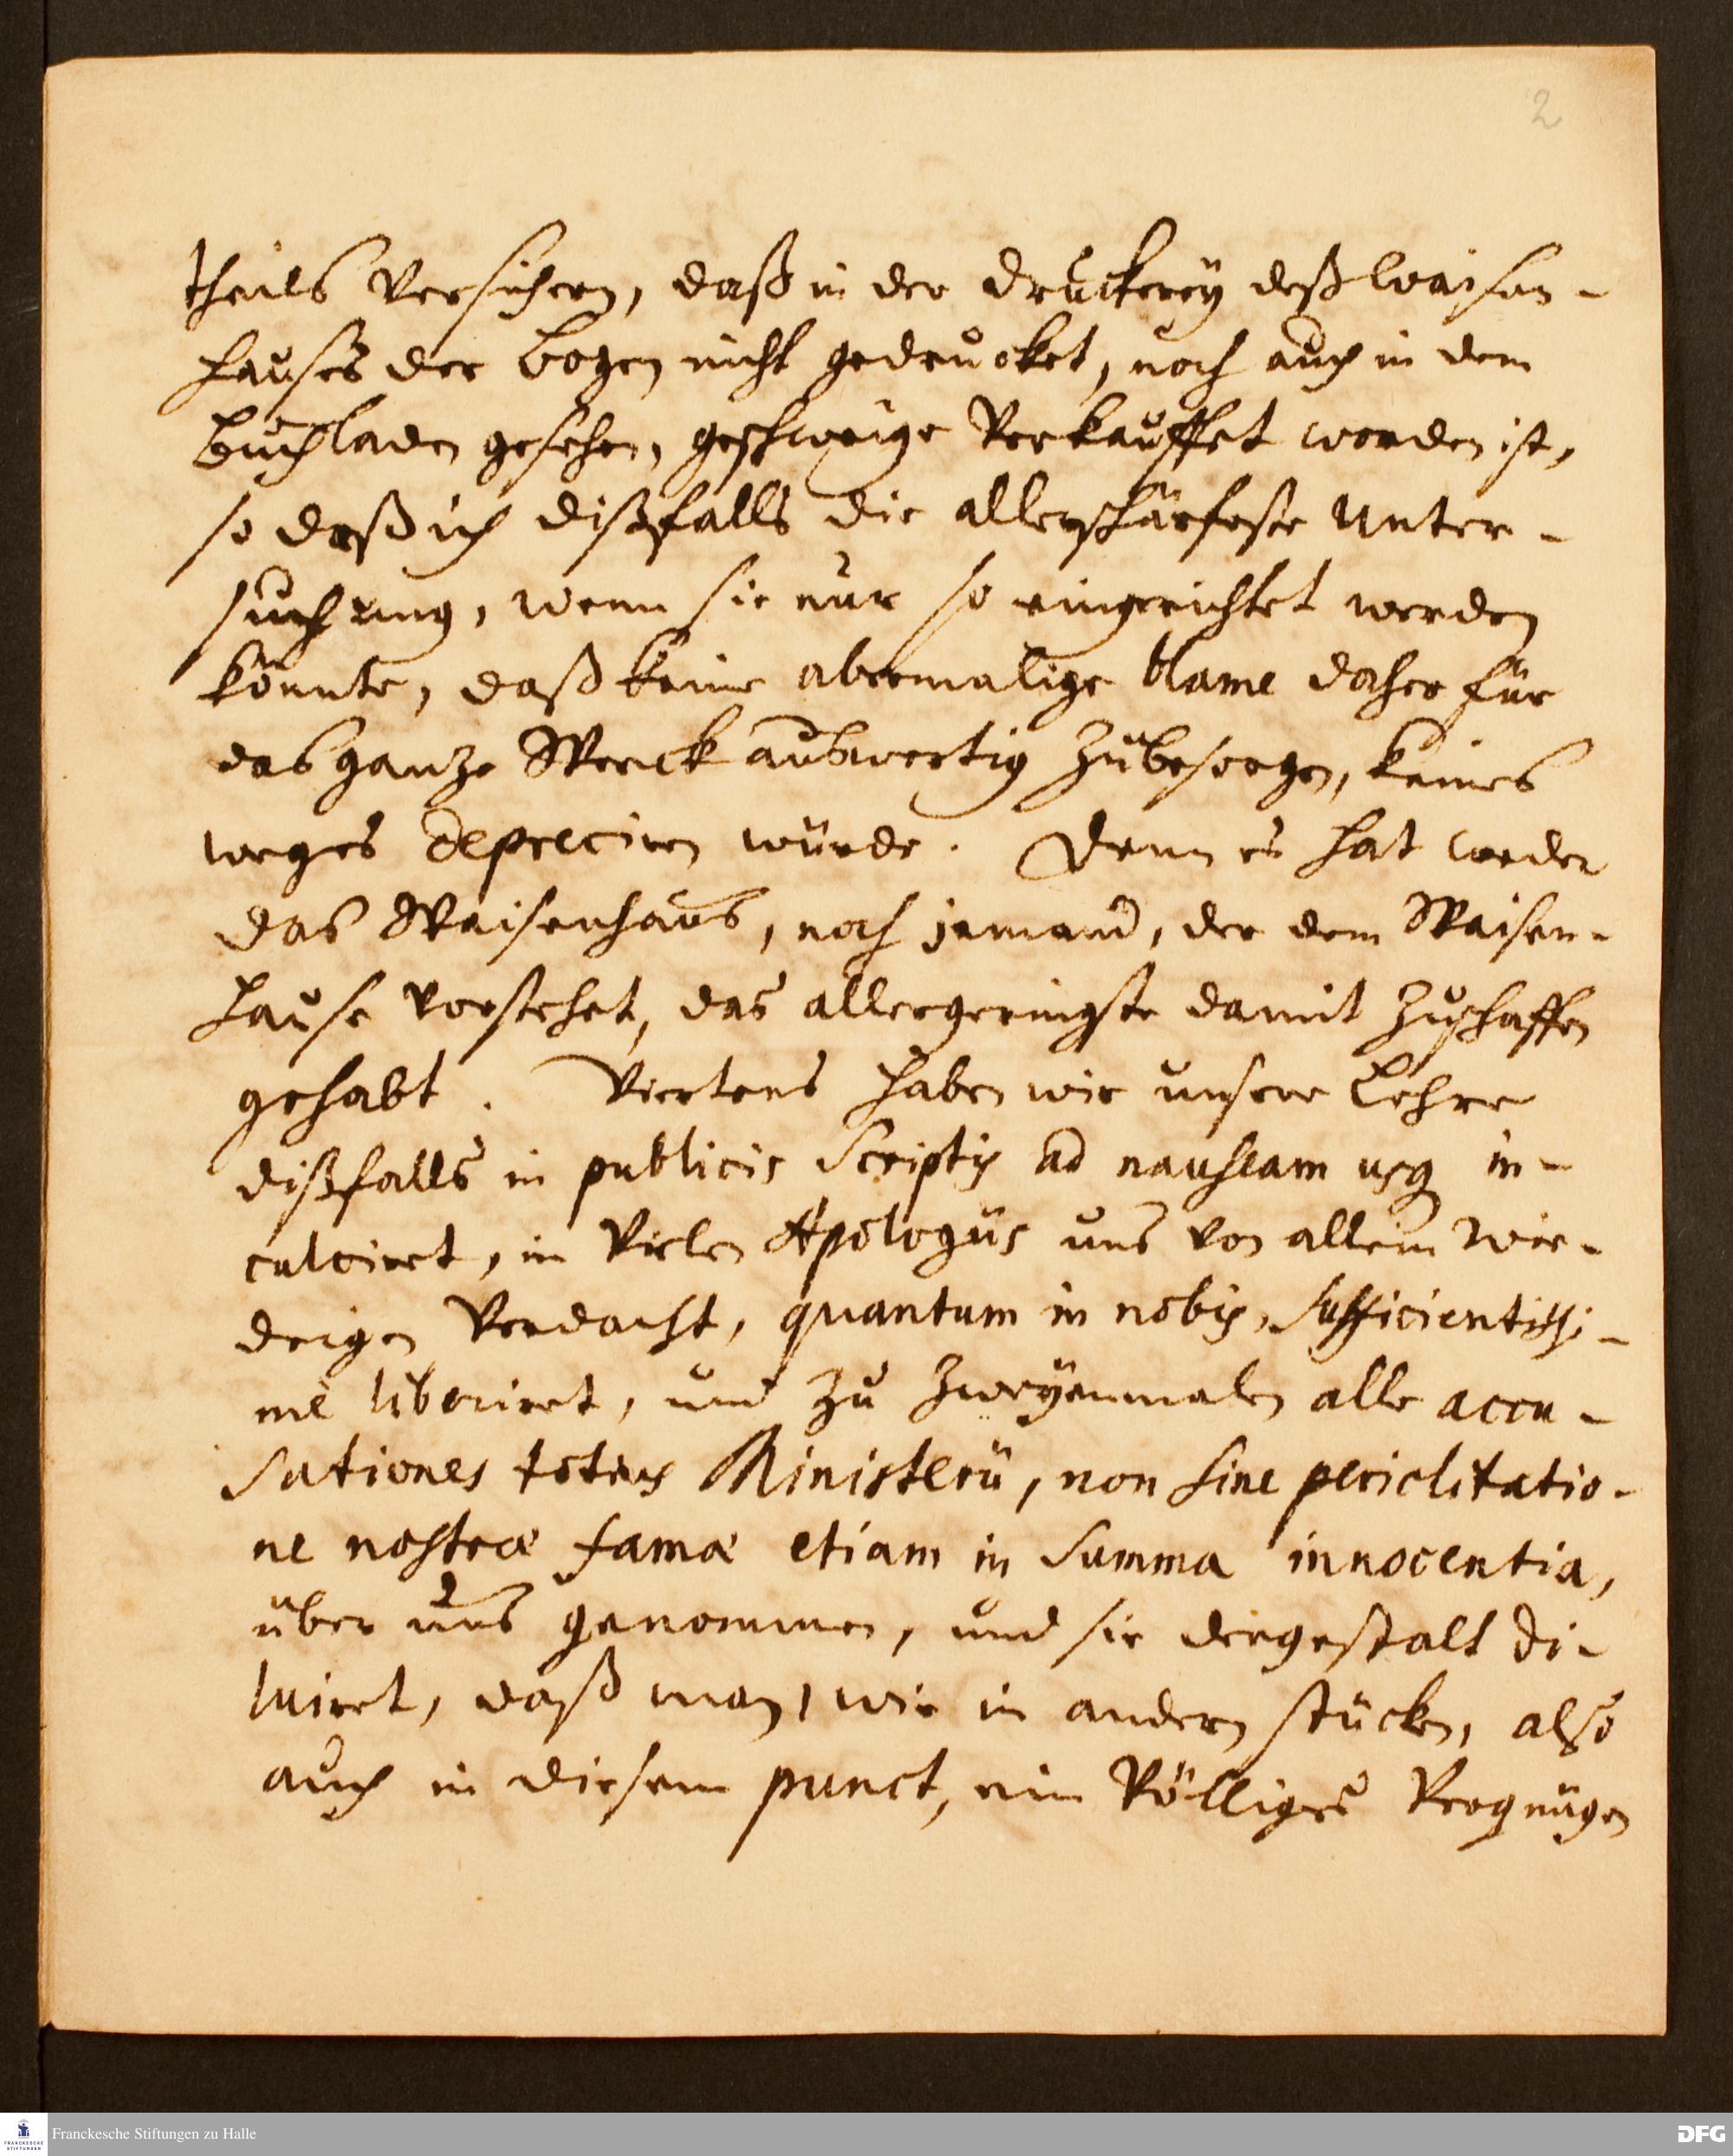 2
theils versichern, daß in der Druckerey deß Waisen-
hauses der Bogen nicht gedrucket, noch auch in dem
Buchladen gesehen, geschweige verkauffet worden ist,
so daß ich dißfalls die allerschärfeste Unter-
suchung, wenn sie nur so eingerichtet werden
könnte, daß keine abermalige blame daher für
das gantze Werck außwertig zübesorgen, keines
weges depreciren würde. Denn es hat weder
das Waisenhaus, noch jemand, der dem Waisen-
hause vorstehet, das allergeringste damit zuschaffen
gehabt. Viertens haben wir unsere Lehre
dißfalls in publicis scriptis ad nauseam usq in-
culciret, in vielen Apologiis uns von allem wie-
drigen Verdacht, quantum in nobis, sufficientissi-
me liberiret, und zu zweyenmalen alle accu-
sationes totius Ministerii, non sine periclitatio-
ne nostræ famæ etiam in summa innocentia,
über uns genommen, und sie dergestalt di-
luiret, daß man, wie in andern stücken, also
auch in diesem punct, ein völliges Vergnügen
Franckesche Stiftungen zu Halle
DFG